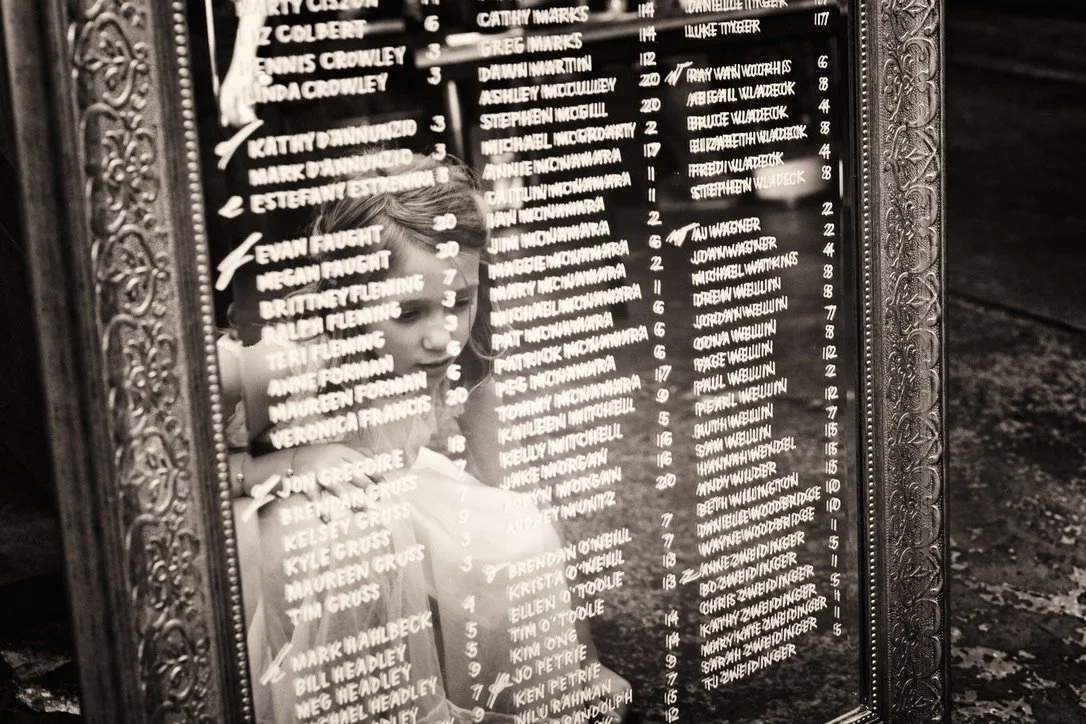 RTY CISZON
Z COLBERT 6
ENNIS CROWLEY 3
NDA CROWLEY 3
KATHY D'ANNUNZIO 3
MARK D'ANNUNZIO 3
e ESTEFANY ESTREMARA 8
f EVAN FAUGHT 20
MEGAN FAUGHT 20
BRITTNEY FLEMING 7
RALPH FLEMING 3
TERI FLEMING 3
ANNE FORMAN 6
MAUREEN FORMAN 6
VERONICA FRANCIS 20
g JON GREGOIRE 18
BRENDAN GRUSS 7
KELSEY GRUSS 7
KYLE GRUSS 9
MAUREEN GRUSS 3
TIM GRUSS 3
h MARK HAHLBECK 4
BILL HEADLEY 5
MEG HEADLEY 5
MICHAEL HEADLEY 9
CATHY MARKS 14
GREG MARKS 14
DAWN MARTIN 12
ASHLEY MCCULLEY 20
STEPHEN MCGILL 20
MICHAEL MCGROARTY 2
ANNIE MCNAMARA 17
CAITLIN MCNAMARA 1
IAN MCNAMARA 1
JIM MCNAMARA 2
MAGGIE MCNAMARA 6
MARY MCNAMARA 2
MICHAEL MCNAMARA 1
PAT MCNAMARA 6
PATRICK MCNAMARA 6
PEG MCNAMARA 6
TOMMY MCNAMARA 17
KAILEEN MITCHELL 9
KELLY MITCHELL 5
JAKE MORGAN 16
ROBYN MORGAN 16
AUDREY MUNTZ 20
o BRENDAN O'NEILL 7
KRISTA O'NEILL 7
ELLEN O'TOOLE 13
TIM O'TOOLE 13
KIM ONG
p JO PETRIE
KEN PETRIE
NILU RAHMAN
RANDOLPH
DANIELLE TYGER 17
LUKE TYGER 17
v RAY VAN VOORHIS 6
ABIGAIL WLADECK 8
BRUCE WLADECK 4
ELIZABETH WLADECK 8
FREDI WLADECK 4
STEPHEN WLADECK 8
w ALI WAGNER 2
JOHN WAGNER 2
MICHAEL WATKINS 4
DREW WELLIN 8
JORDAN WELLIN 8
OONA WELLIN
PAGE WELLIN
PAUL WELLIN
PEARL WELLIN
RUTH WELLIN
SAM WELLIN
HANNAH WENDEL
ANDY WILDER
BETH WILLINGTON
DANIELLE WOODBRIDGE
WAYNE WOODBRIDGE
z ANNE ZWEIDINGER
BO ZWEIDINGER
CHRIS ZWEIDINGER
KATHY ZWEIDINGER
MARY KATE ZWEIDINGER
SARAH ZWEIDINGER
TJ ZWEIDINGER